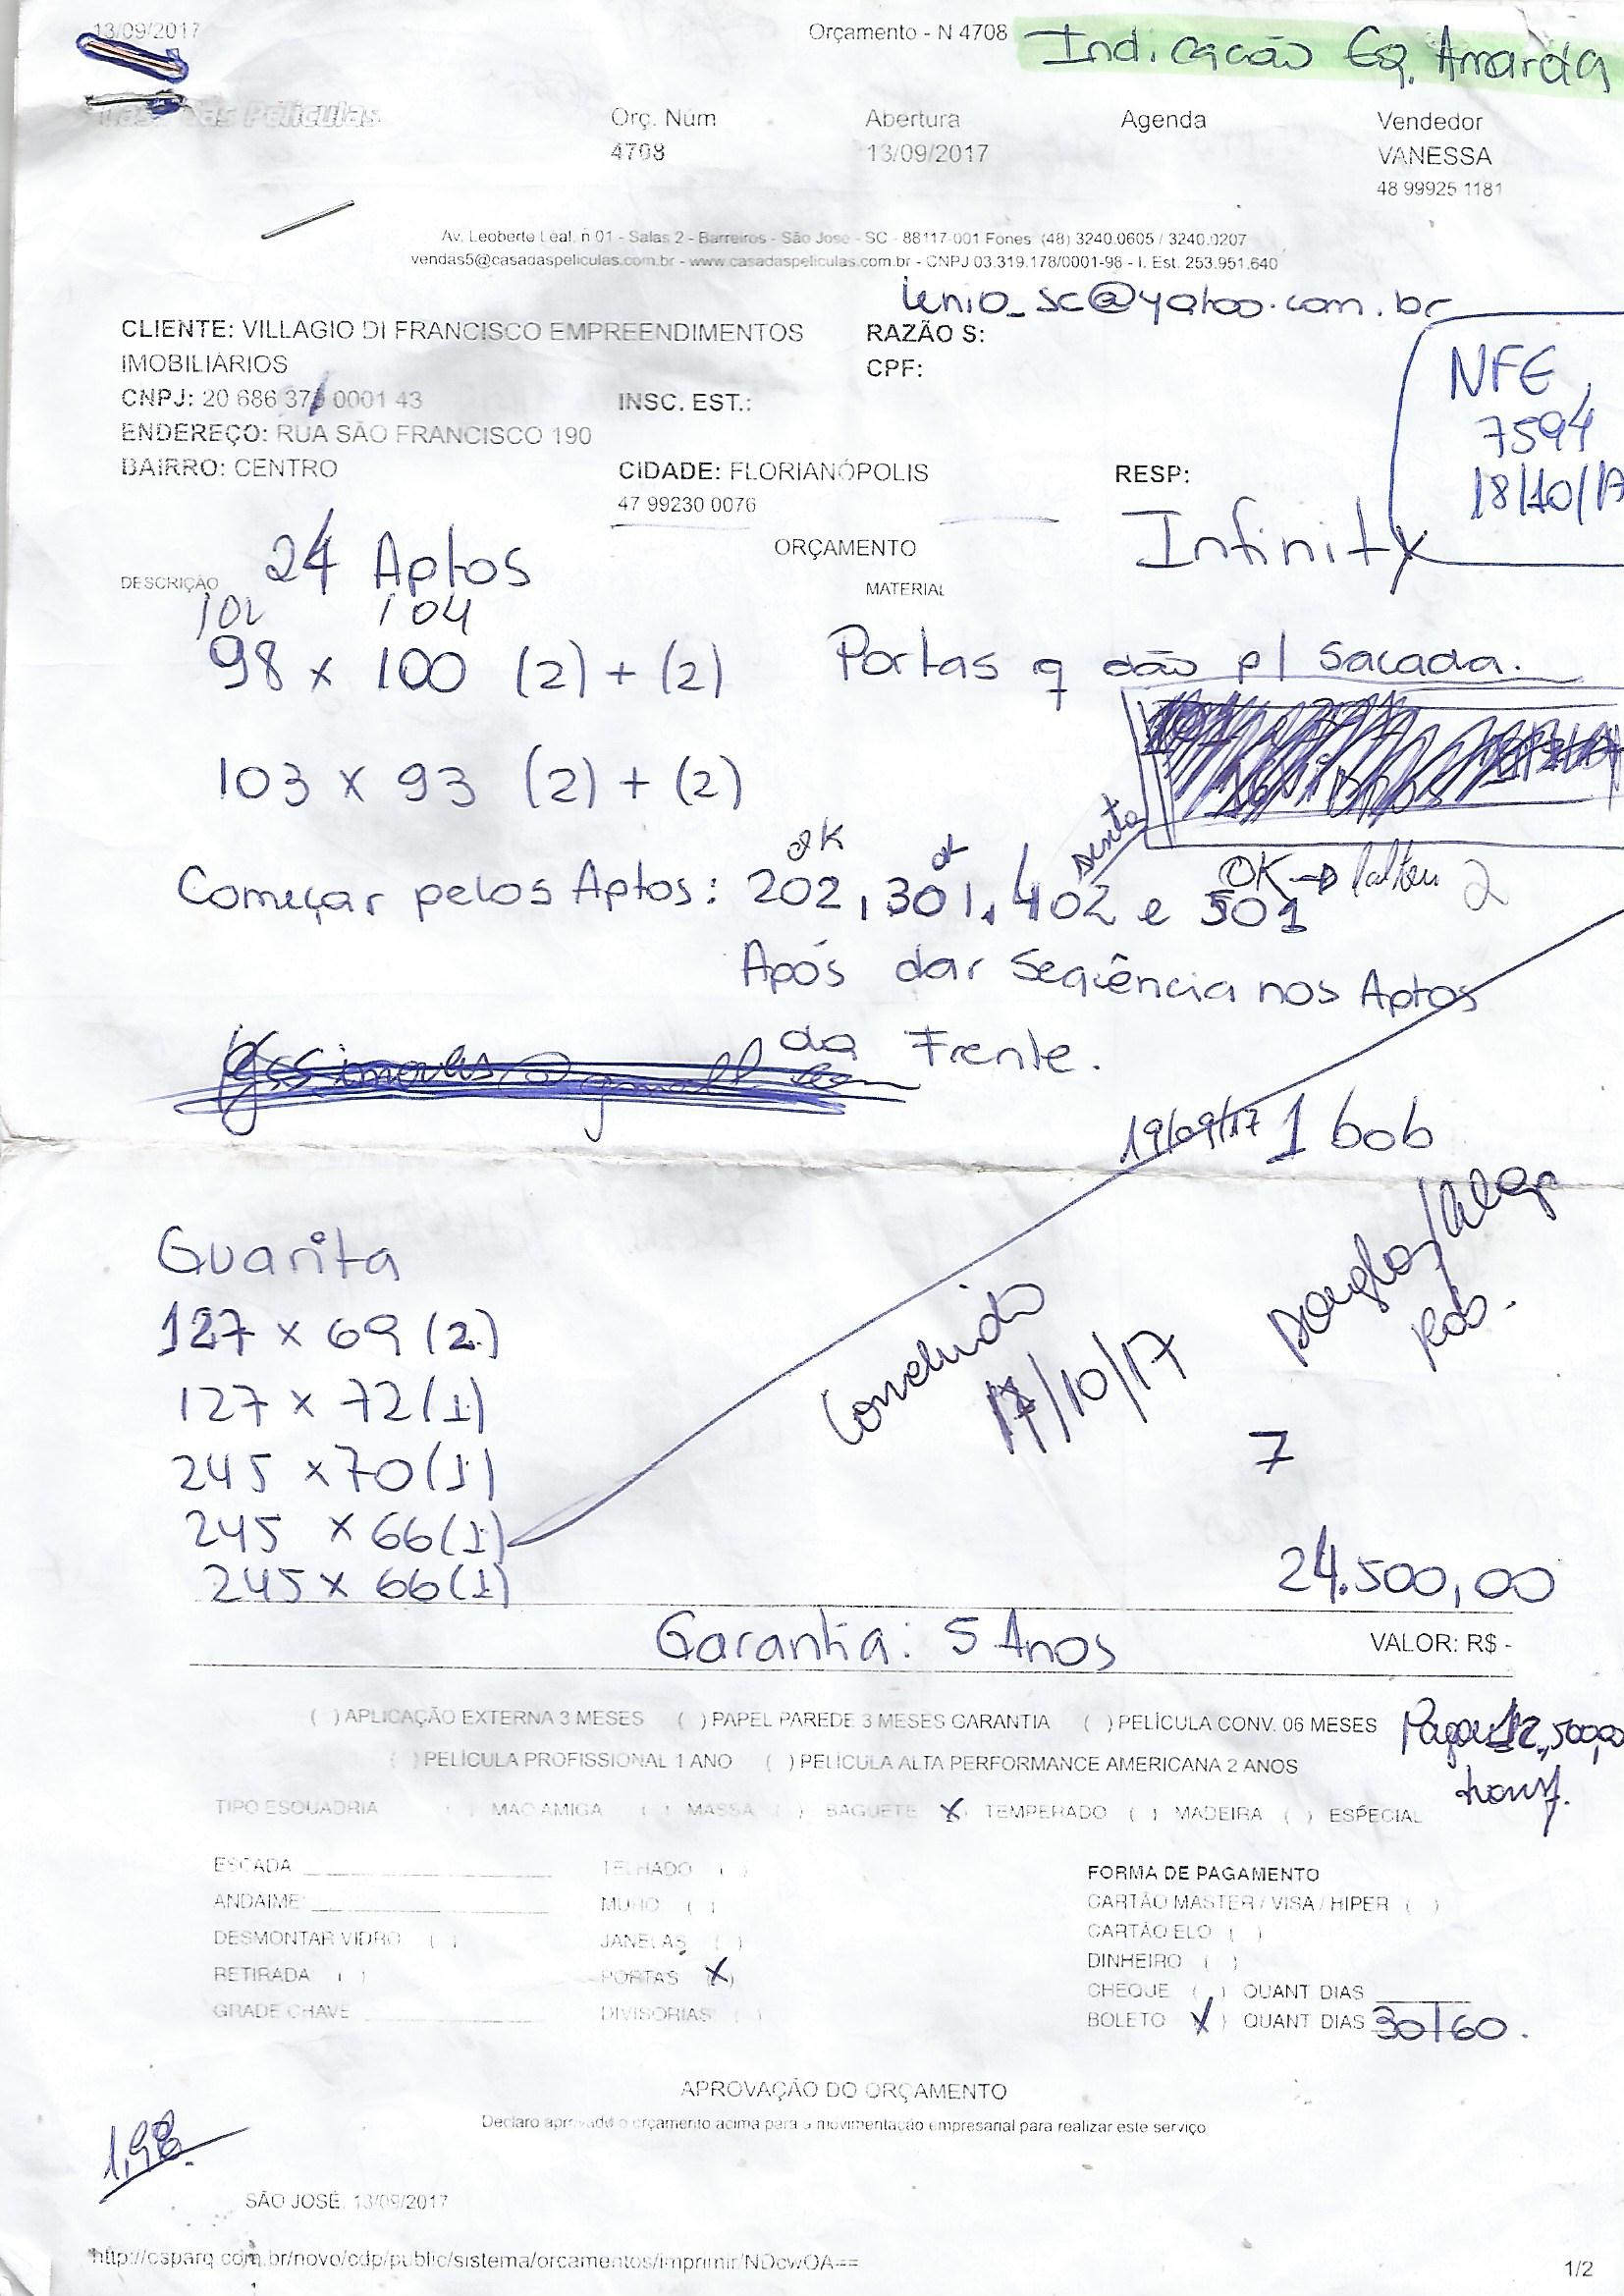 13/09/2017 Orçamento - N 4708 Indicação Eq. Amanda
Casa das Películas Orç. Núm Abertura Agenda Vendedor
4708 13/09/2017 VANESSA
48 99925 1181
Av. Leoberto Leal, n 01 - Salas 2 - Barreiros - São José - SC - 88117-001 Fones (48) 3240.0605 / 3240.0207
vendas5@casadaspeliculas.com.br - www.casadaspeliculas.com.br - CNPJ 03.319.178/0001-96 - I. Est. 253.951.640
lenio_sc@yahoo.com.br
CLIENTE: VILLAGIO DI FRANCISCO EMPREENDIMENTOS RAZÃO S:
IMOBILIÁRIOS CPF: NFE
CNPJ: 20 686 37 0001 43 INSC. EST.: 7594
ENDEREÇO: RUA SÃO FRANCISCO 190
BAIRRO: CENTRO CIDADE: FLORIANÓPOLIS RESP: 18/10/17
47 99230 0076
24 Aptos ORÇAMENTO Infinity
DESCRIÇÃO MATERIAL
102 104
98 x 100 (2) + (2) Portas q dão p/ Sacada.
103 x 93 (2) + (2)
OK ok sexta OK → 2
Começar pelos Aptos: 202, 301, 402 e 501
Após dar Seqüência nos Aptos
da Frente.
19/09/17 1 bob
Guarita
127 x 69 (2) Concluido Douglas
127 x 72 (1) 17/10/17 Rob.
245 x 70 (1) 7
245 x 66 (1)
245 x 66 (1) 24.500,00
Garantia: 5 Anos VALOR: R$ -
( ) APLICAÇÃO EXTERNA 3 MESES ( ) PAPEL PAREDE 3 MESES GARANTIA ( ) PELÍCULA CONV. 06 MESES Pagou 12.500,00
( ) PELÍCULA PROFISSIONAL 1 ANO ( ) PELÍCULA ALTA PERFORMANCE AMERICANA 2 ANOS transf.
TIPO ESQUADRIA ( ) MAO AMIGA ( ) MASSA ( ) BAGUETE X TEMPERADO ( ) MADEIRA ( ) ESPECIAL
ESCADA TELHADO ( ) FORMA DE PAGAMENTO
ANDAIME MURO ( ) CARTÃO MASTER / VISA / HIPER ( )
DESMONTAR VIDRO ( ) JANELAS ( ) CARTÃO ELO ( )
RETIRADA ( ) PORTAS (X) DINHEIRO ( )
GRADE CHAVE DIVISORIAS ( ) CHEQUE ( ) QUANT DIAS
BOLETO (X) QUANT DIAS 30/60.
APROVAÇÃO DO ORÇAMENTO
Declaro aprovado o orçamento acima para a movimentação empresarial para realizar este serviço
1,98.
SÃO JOSÉ, 13/09/2017
http://csparq.com.br/novo/cdp/public/sistema/orcamentos/imprimir/NDcwOA== 1/2